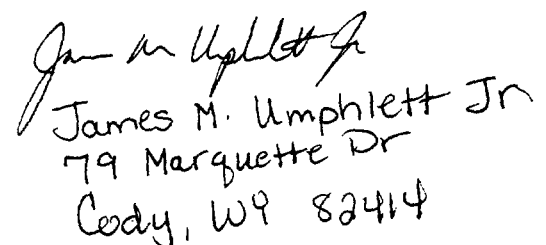 James M Umphlett Jr
James M. Umphlett Jr
79 Marquette Dr
Cody, WY 82414